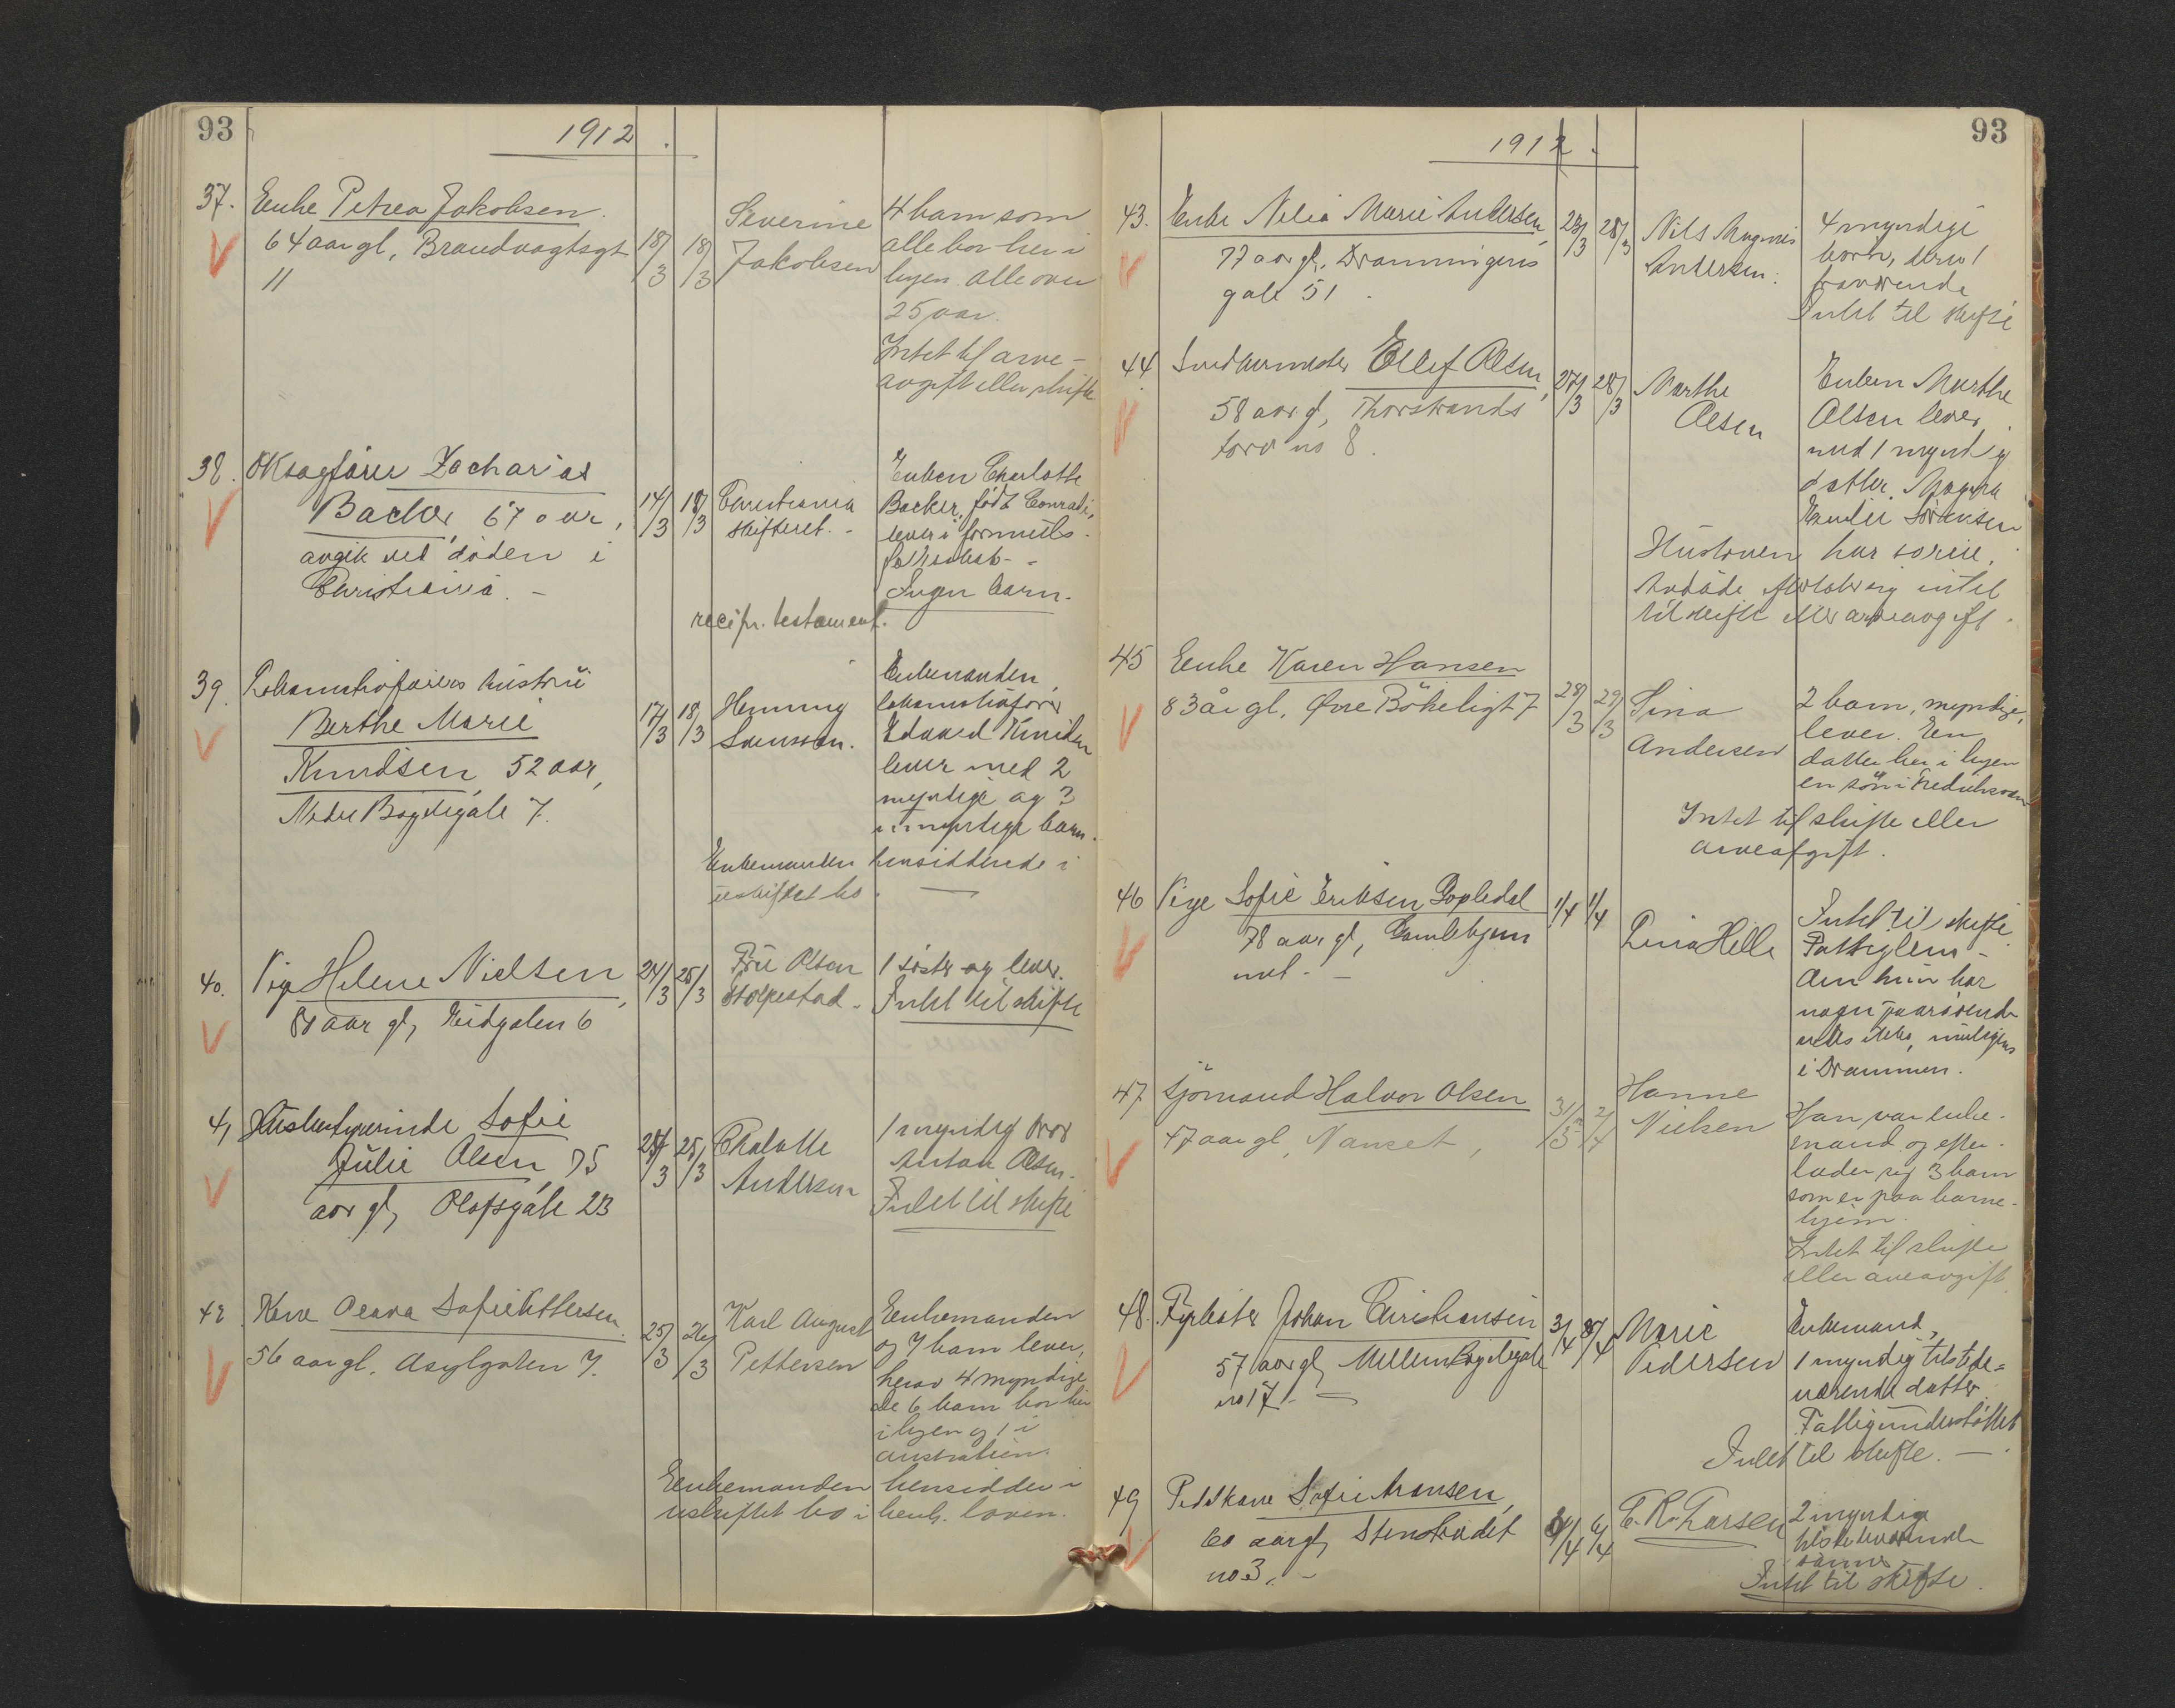 93
1912.
37. Enke Petrea Jakobsen.
64 aar gl, Brandvagtsgt
11
18/3 18/3
Severine
Jakobsen
4 barn som
alle bor her i
byen. alle over
25 aar.
Intet til arve-
avgift eller skifte
38. OKsagfører Zacharias
Backer, 67 aar,
avgik ved døden i
Christiania. -
14/3 18/3
Christiania
skifteret. -
Enken Charlotte
Backer, født Conradi,
lever i formues-
fællesskab. -
Ingen barn.
recipr. testament.
39. Lokomotivførers hustru
Berthe Marie
Knudsen, 52 aar,
Nedre Bøgeligate 7.
17/3 18/3
Henning
Svensson.
Enkemanden,
lokomotivfører
Edvard Knudsen
lever med 2
myndige og 3
umyndige barn.
Enkemanden hensiddende i
uskiftet bo. —
40. Pige Helene Nielsen,
aar gl, Eidgaten 6
24/3 25/3
Frü Olsen
Stolpestad.
1 søster og lever.
Intet til skifte
41 Husbestyrerinde Sofie
Julie Olsen, 75
aar gl, Olafsgate 23
25/3
Charlotte
Andersen
1 myndig bror
Anton Olsen.
Intet til skifte
42. Kone Olava Sofie Pettersen.
56 aar gl. Asylgaten 7.
25/3 26/3
Karl August
Pettersen
Enkemanden
og 7 barn lever,
herav 4 myndige
de 6 barn bor her
i byen og 1 i
Australien.
Enkemanden hensidder i
uskiftet bo i henh. loven.
93
1912.
43. Enke Nelia Marie Andersen,
77 aar gl. Dronningens
gate 51.
28/3
Nils Magnus
Andersen.
4 myndige
børn, derav 1
fraværende
Intet til skifte
44. Ellef Olsen,
58 aar gl, Thorstrands
torv no 8.
27/3 28/3
Marthe
Olsen
Enken Marthe
Olsen lever
med 1 myndig
datter,
Sørensen
Hustruen har
Avdøde efterlater sig intet
til skifte eller arveavgift.
45 Enke Karen Hansen
83 år gl. Øvre Bökeligt 7
28/3 29/3
Sina
Andersen
2 barn, myndige,
lever. En
datter her i byen
en søn i Fredriksværn
Intet til skifte eller
arveafgift.
46 Pige Sofie Eriksen Gopledal
78 aar gl, Gamlehjem
met. -
1/4 1/4
Lina Helle
Intet til skifte.
Fattiglem -
Om hun har
nogen paarørende
vides ikke, muligens
i Drammen.
47 Sjömand Halvor Olsen
47 aar gl, Nanset,
31/3 2/4
Hanne
Nielsen
Han var enke-
mand og efter-
lader sig 3 barn
som er paa barne-
hjem.
Intet til skifte
eller arveavgift
48. Fyrbøter Johan Christiansen
57 aar gl, Mellem Bøgeligate
no 17. -
3/4
Marie
Pedersen
Enkemand,
1 myndig tilstede-
værende datter.
Fattigunderstøttet
Intet til skifte. —
49 Sofie Aronsen,
60 aar gl, Stenstrædet
no 3. -
4/4 6/4
C. R. Larsen
2 myndige
tilstedeværende
sønner
Intet til skifte.